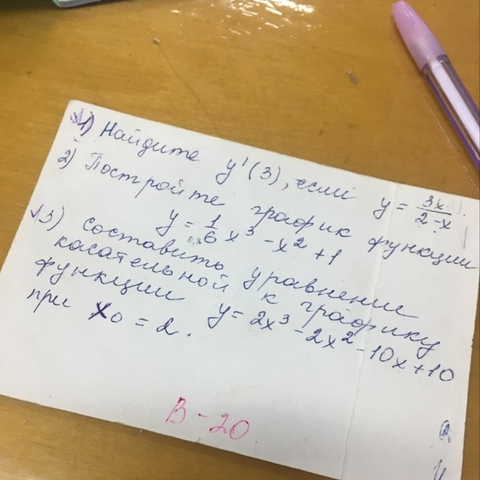 1) Найдите y'(3), если y = 3x/(2-x).
2) Постройте график функции
y = 1/6 x³ - x² + 1
3) составить уравнение
касательной к графику
функции y = 2x³ - 2x² - 10x + 10
при x₀ = 2.
В - 20